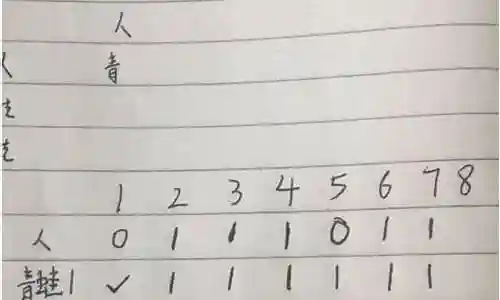 人
人 青
走
走
1 2 3 4 5 6 7 8
人 0 1 1 1 0 1 1
青蛙1 ✓ 1 1 1 1 1 1